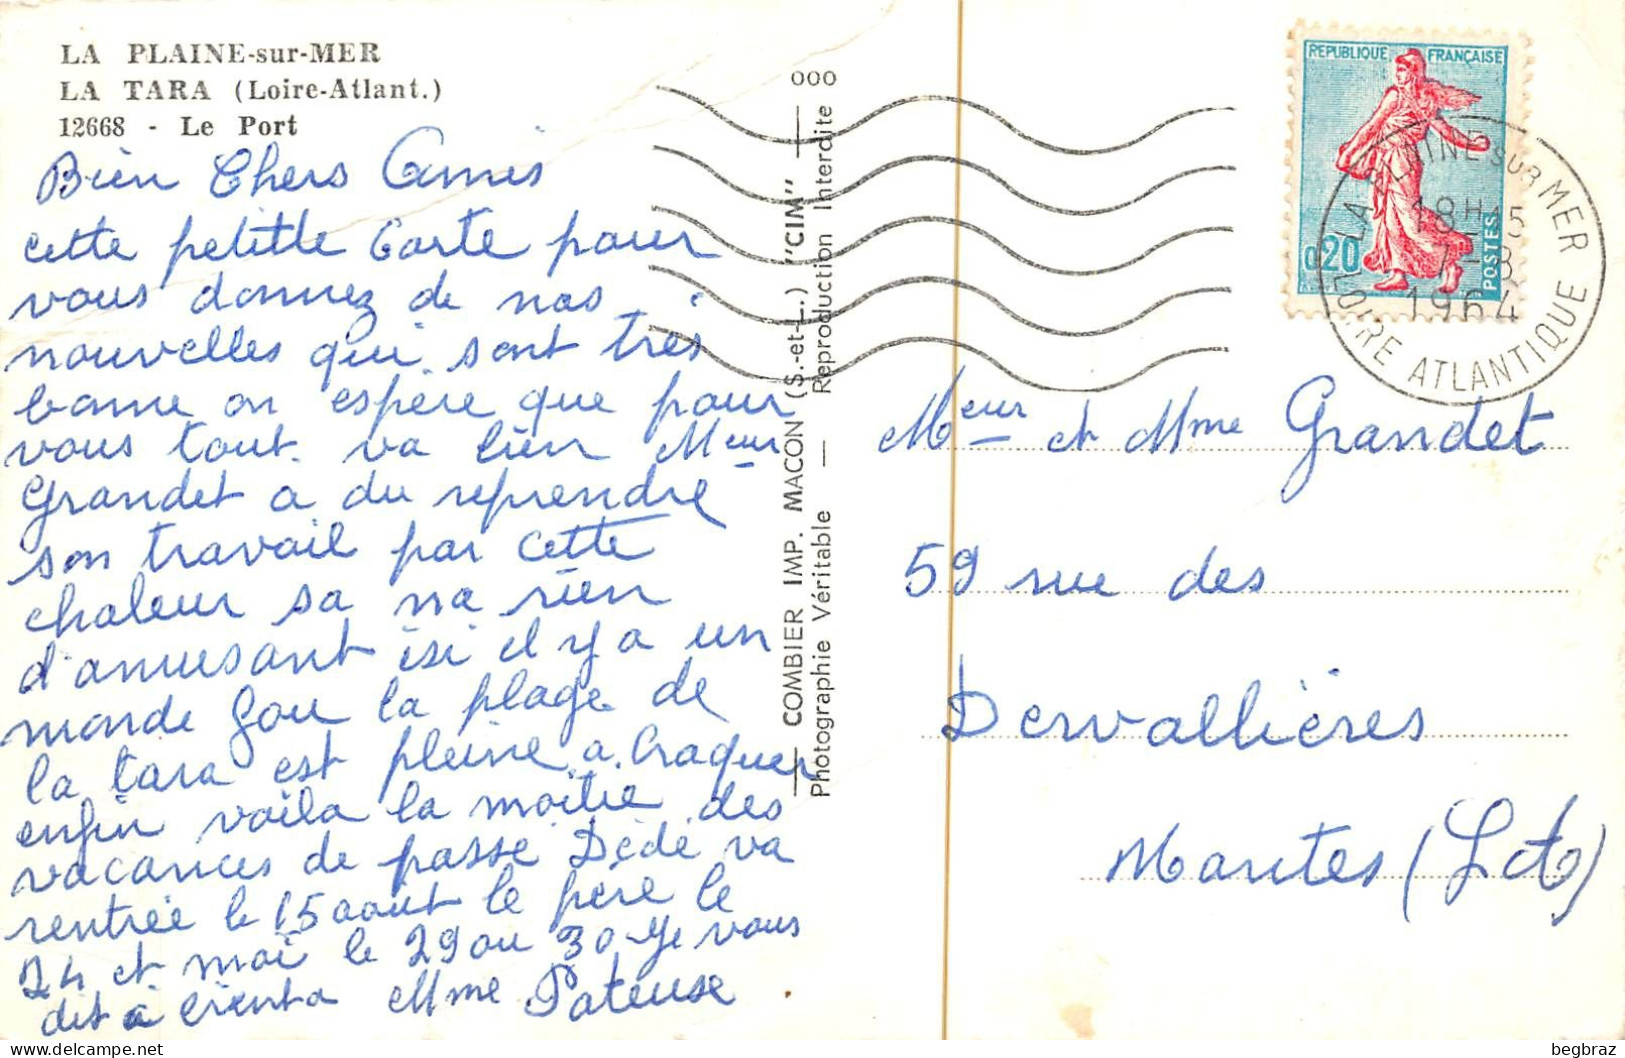 LA PLAINE-sur-MER
LA TARA (Loire-Atlant.)
12668 - Le Port
Bien Chers Amis
cette petitte Carte pour
vous donnez de nos
nouvelles qui sont très
bonne on espère que pour
vous tout va bien Meur
Grandet a du reprendre
son travail par cette
chaleur sa na rien
d'amusant isi il y a un
monde fou la plage de
la tara est pleine a craquer
enfin voila la moitie des
vacances de passé Dédé va
rentrée le 15 aout le père le
24 et moi le 29 ou 30 Je vous
dit a bientot Mme Pateuse
COMBIER IMP. MACON (S.-et-L.) "CIM"
Photographie Véritable — Reproduction Interdite
000
REPUBLIQUE FRANÇAISE
0,20
POSTES
LA PLAINE SUR MER
18H15
7-8
1964
LOIRE ATLANTIQUE
Meur et Mme Grandet
59 rue des
Dervallières
Nantes (L At)
begbraz